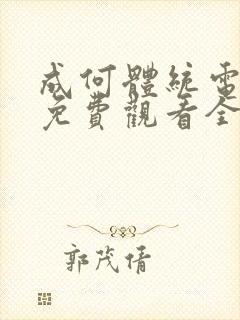 成何體統電
免費觀看全
郭茂倩